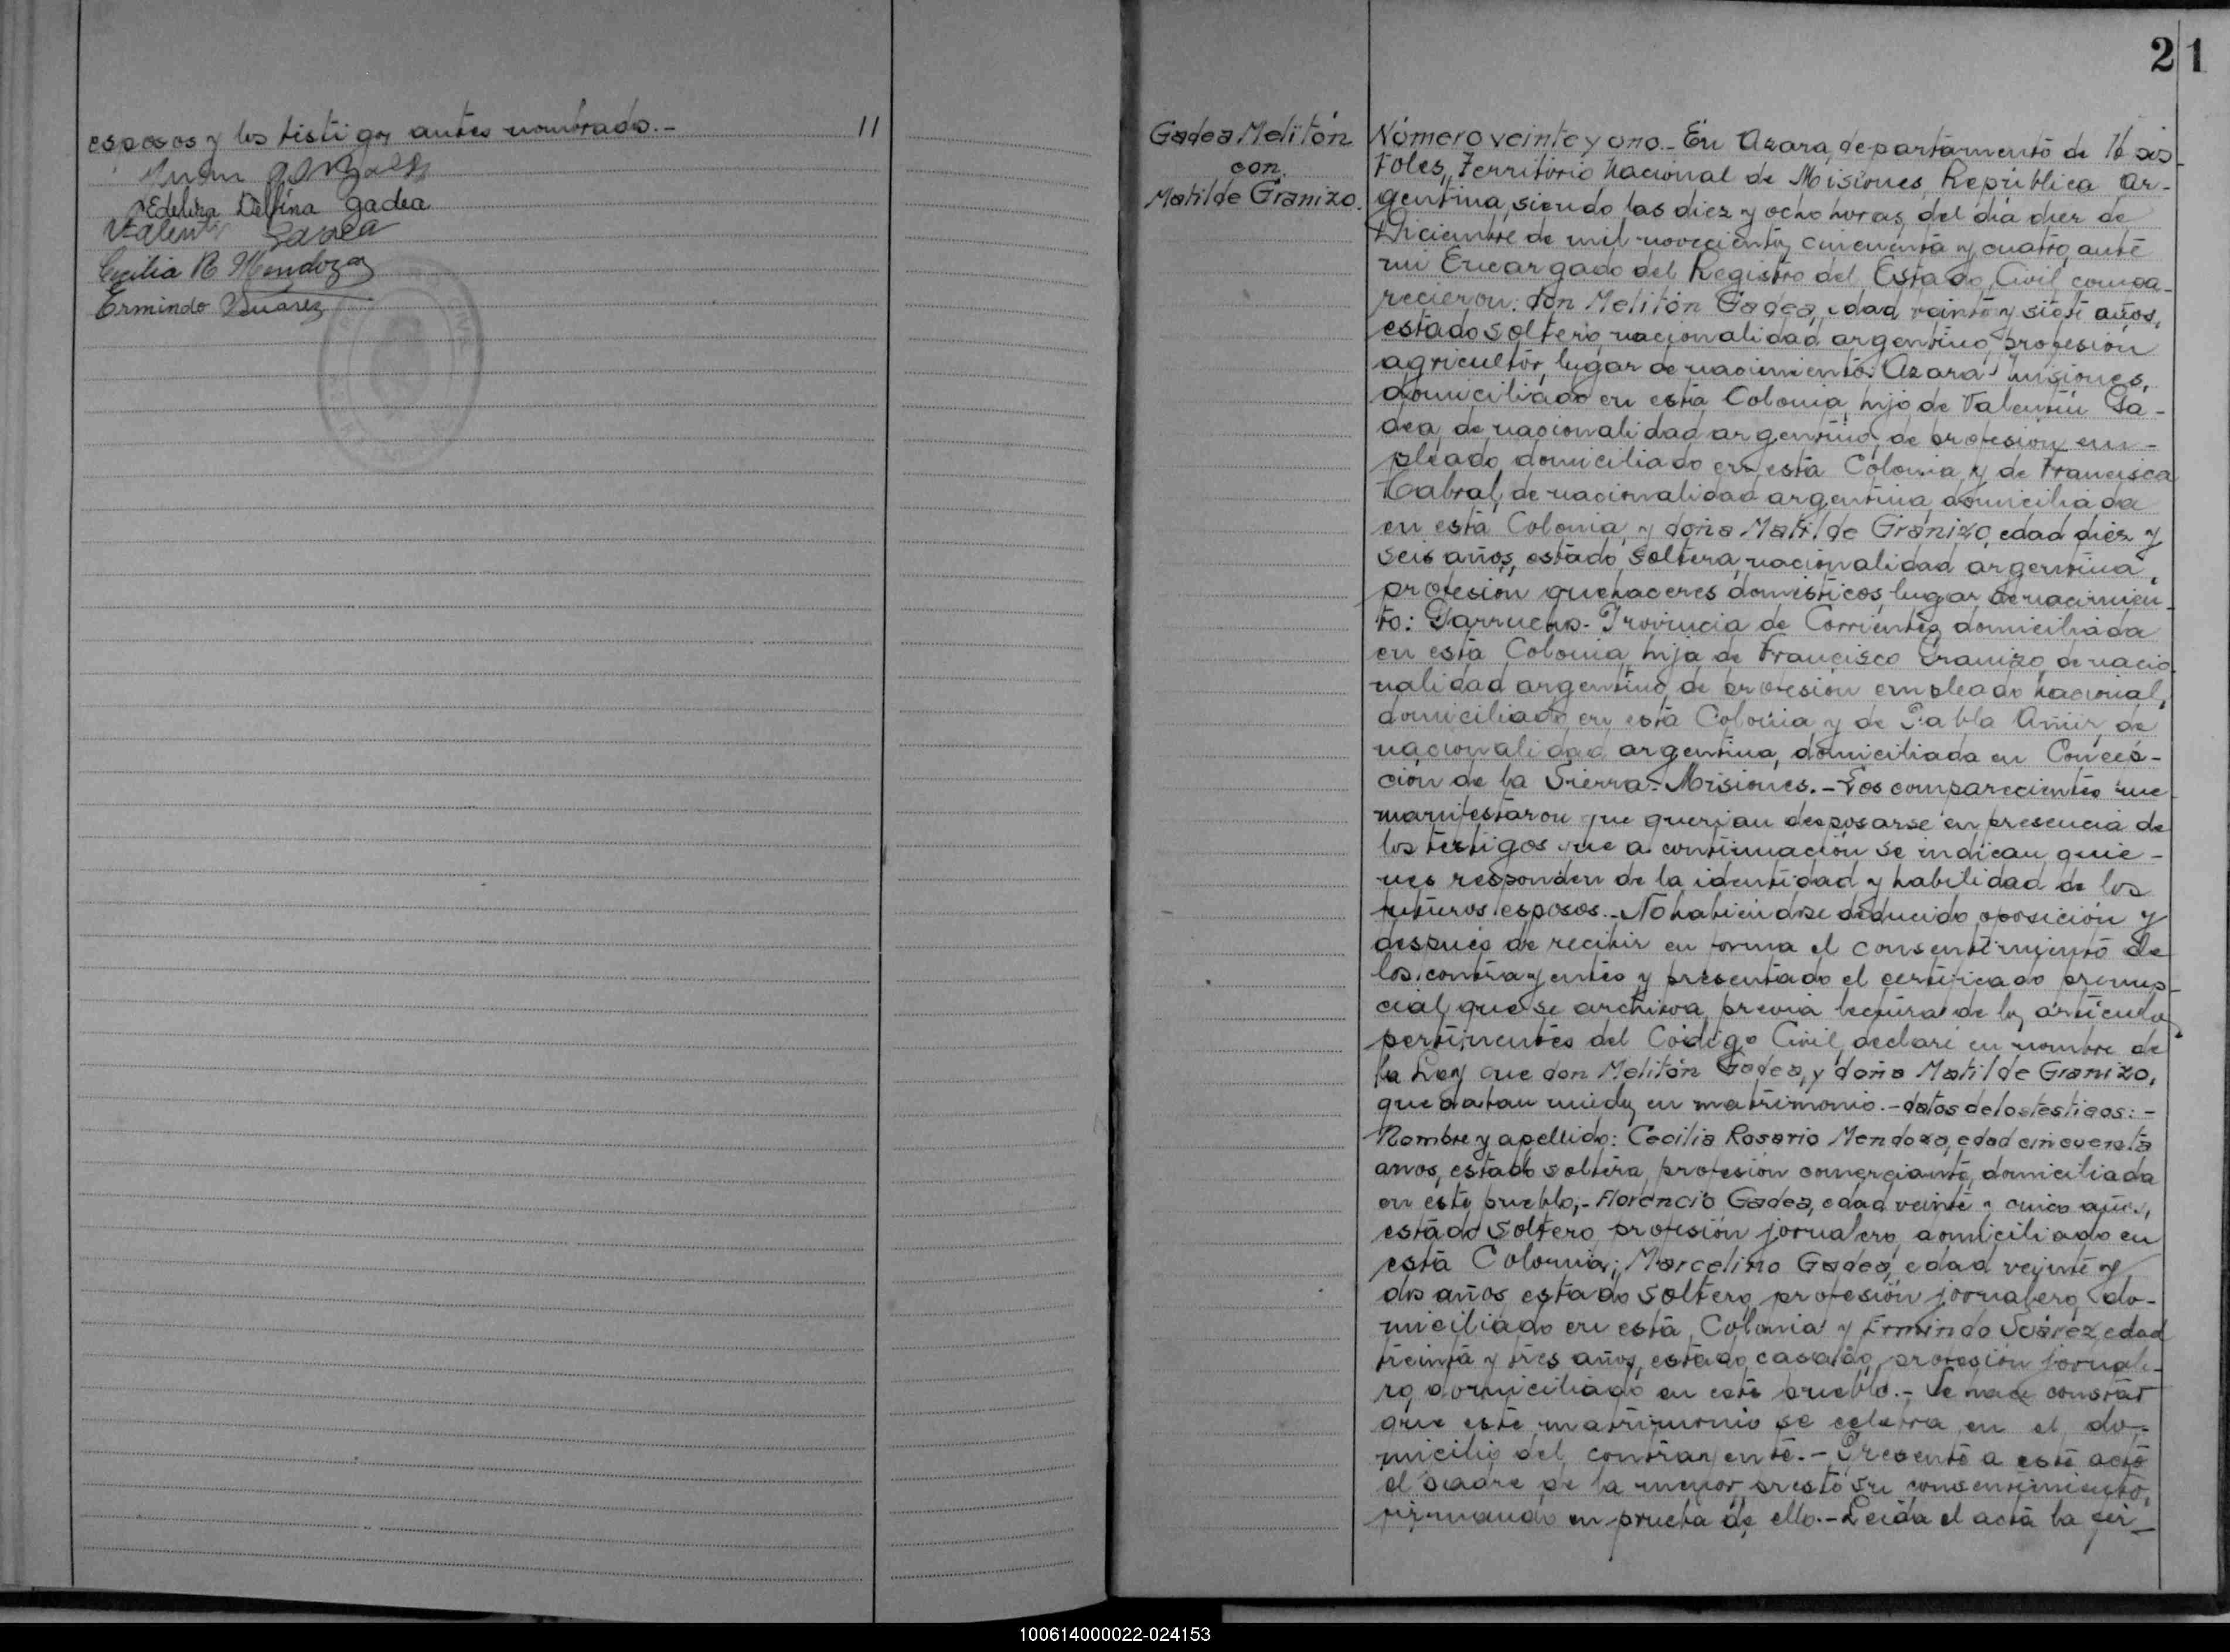 esposos y los testigos antes nombrado.-
11
Juan Gonzalez
Edelira Delfina Gadea
Valentin Gadea
Cecilia R Mendoza
Ermindo Suarez
21
Gadea Melitón
con
Matilde Granizo.
Número veinte y uno.- En Azara, departamento de Após
toles, Territorio Nacional de Misiones, República Ar-
gentina, siendo las diez y ocho horas, del día diez de
Diciembre de mil novecientos cincuenta y cuatro, ante
mi Encargado del Registro del Estado Civil, compa-
recieron: don Melitón Gadea, edad veinte y siete años,
estado soltero, nacionalidad argentino, profesión
agricultor, lugar de nacimiento: Azara Misiones,
domiciliado en esta Colonia, hijo de Valentín Ga-
dea, de nacionalidad argentino, de profesión em-
pleado, domiciliado en esta Colonia y de Francisca
Cabral, de nacionalidad argentina, domiciliada
en esta Colonia, y doña Matilde Granizo, edad diez y
seis años, estado soltera, nacionalidad argentina,
profesión quehaceres domésticos, lugar de nacimien-
to: Garruchos- Provincia de Corrientes, domiciliada
en esta Colonia, hija de Francisco Granizo, de nacio
nalidad argentino, de profesión empleado nacional,
domiciliado en esta Colonia y de Pabla de
nacionalidad argentina, domiciliada en Concep-
ción de la Sierra- Misiones.- Los comparecientes me
manifestaron que querian desposarse en presencia de
los testigos que a continuación se indican, quie-
nes responden de la identidad y habilidad de los
futuros esposos.- No habiéndose deducido oposición y
después de recibir en forma el consentimiento de
los contrayentes y presentado el certificado prenup-
cial, que se archiva, previa lectura de los artículos
pertinentes del Código Civil, declaré en nombre de
la Ley que don Melitón Gadea, y doña Matilde Granizo,
quedaban unidos en matrimonio.- datos de los testigos:-
Nombre y apellido: Cecilia Rosario Mendoza, edad cincuenta
años, estado soltera, profesión comerciante, domiciliada
en este pueblo,- Florencio Gadea, edad veinte y cinco años,
estado soltero, profesión jornalero, domiciliado en
esta Colonia; Marcelino Gadea, edad veinte y
dos años, estado soltero, profesión jornalero, do-
miciliado en esta Colonia y Ermindo Suárez, edad
treinta y tres años, estado casado, profesión jornale-
ro, domiciliado en este pueblo.- Se hace constar
que este matrimonio se celebra en el do-
micilio del contrayente.- Presente a este acto
el padre de la menor, prestó su consentimiento,
firmando en prueba de ello.- Leída el acta la fir-
100614000022-024153